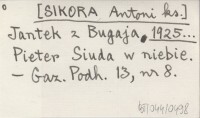 [SIKORA Antoni ks.]
Jantek z Bugaja, 1925...
Pieter Siuda w niebie.
– Gaz. Podh. 13, nr 8.